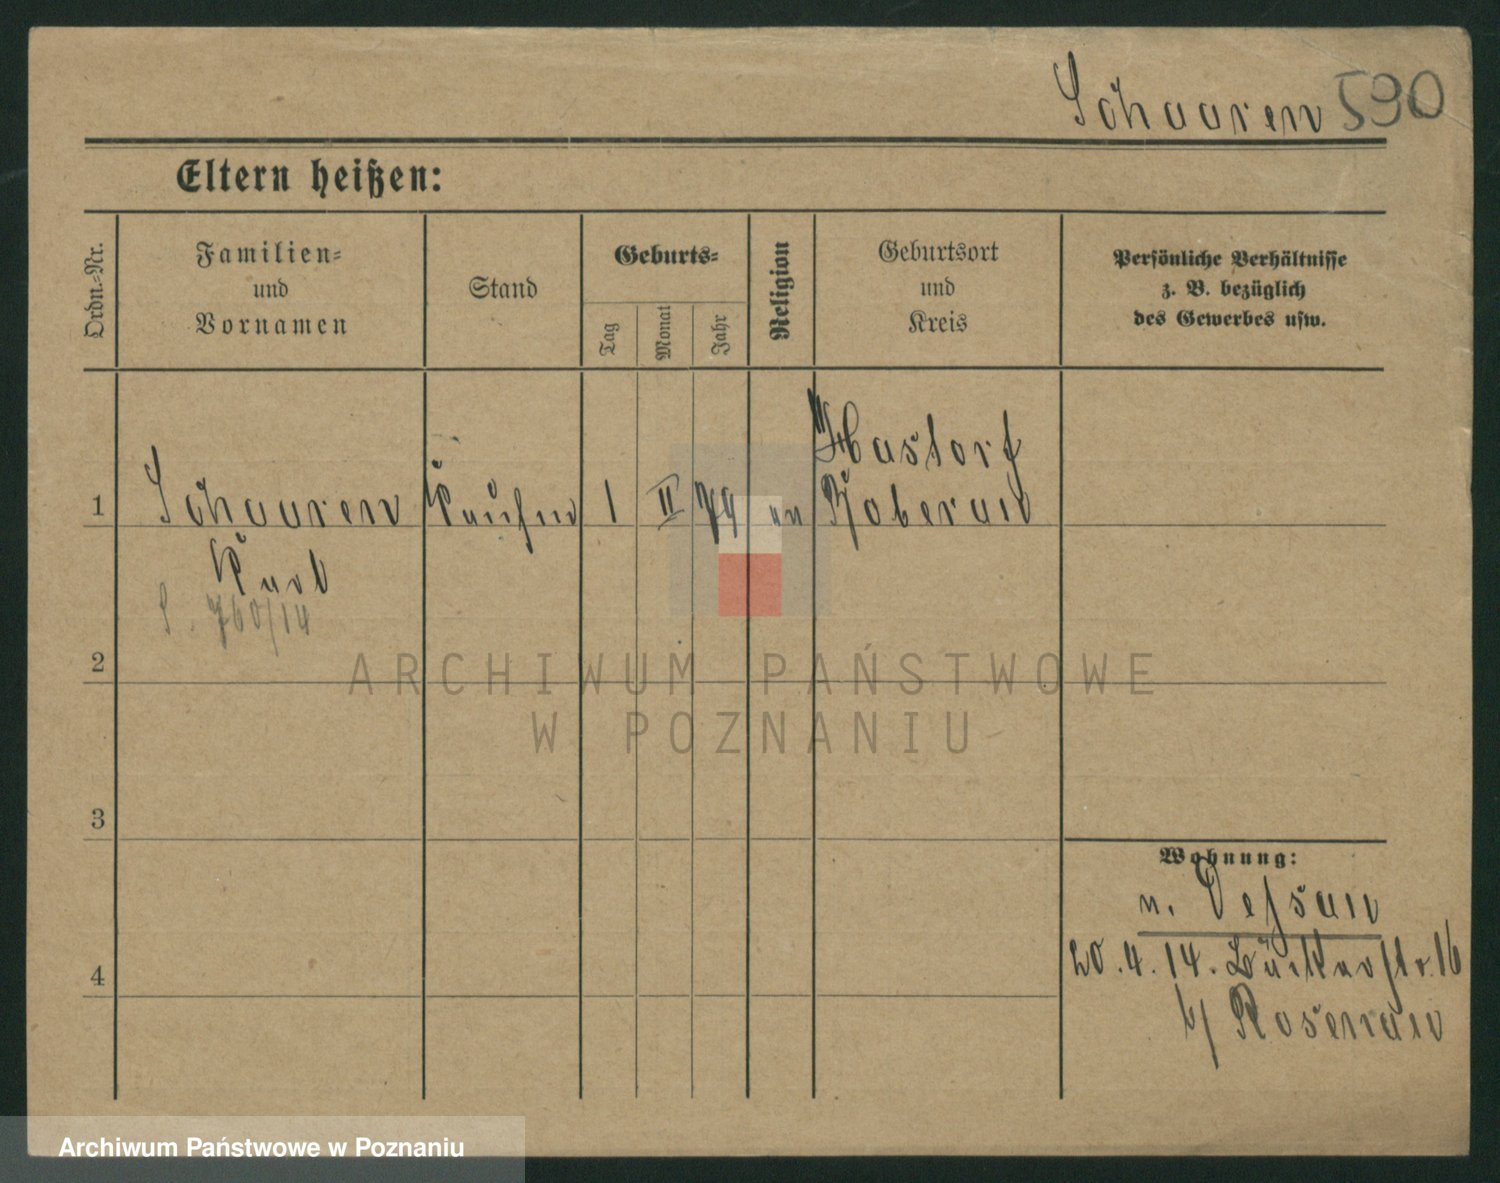 Schaaren 590
Eltern heißen:
Ordn.-Nr.
Familien-
und
Vornamen
Stand
Geburts-
Tag
Monat
Jahr
Religion
Geburtsort
und
Kreis
Persönliche Verhältnisse
z. B. bezüglich
des Gewerbes usw.
Hastorf
1 Schaaren Kaufm 1 II 79
Karl
S. 760/14
2
ARCHIWUM PAŃSTWOWE
W POZNANIU
3
Wohnung:
n. Dessau
20.4.14. 16
4
b/ Rosenau
Archiwum Państwowe w Poznaniu